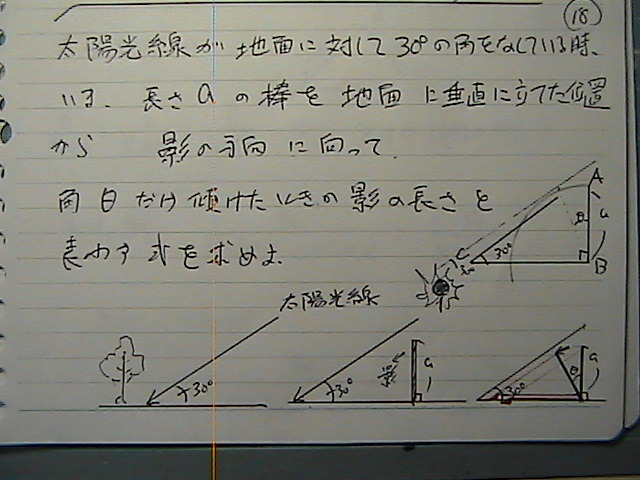 18
太陽光線が地面に対して30°の角をなしている時、
いる、長さaの棒を地面に垂直に立てた位置
から 影の方向に向って、
角θだけ傾けたときの影の長さを
表わす式を求めよ。
A
θ
a
C
30°
B
太陽光線
30°
30°
影
a
30°
θ
a